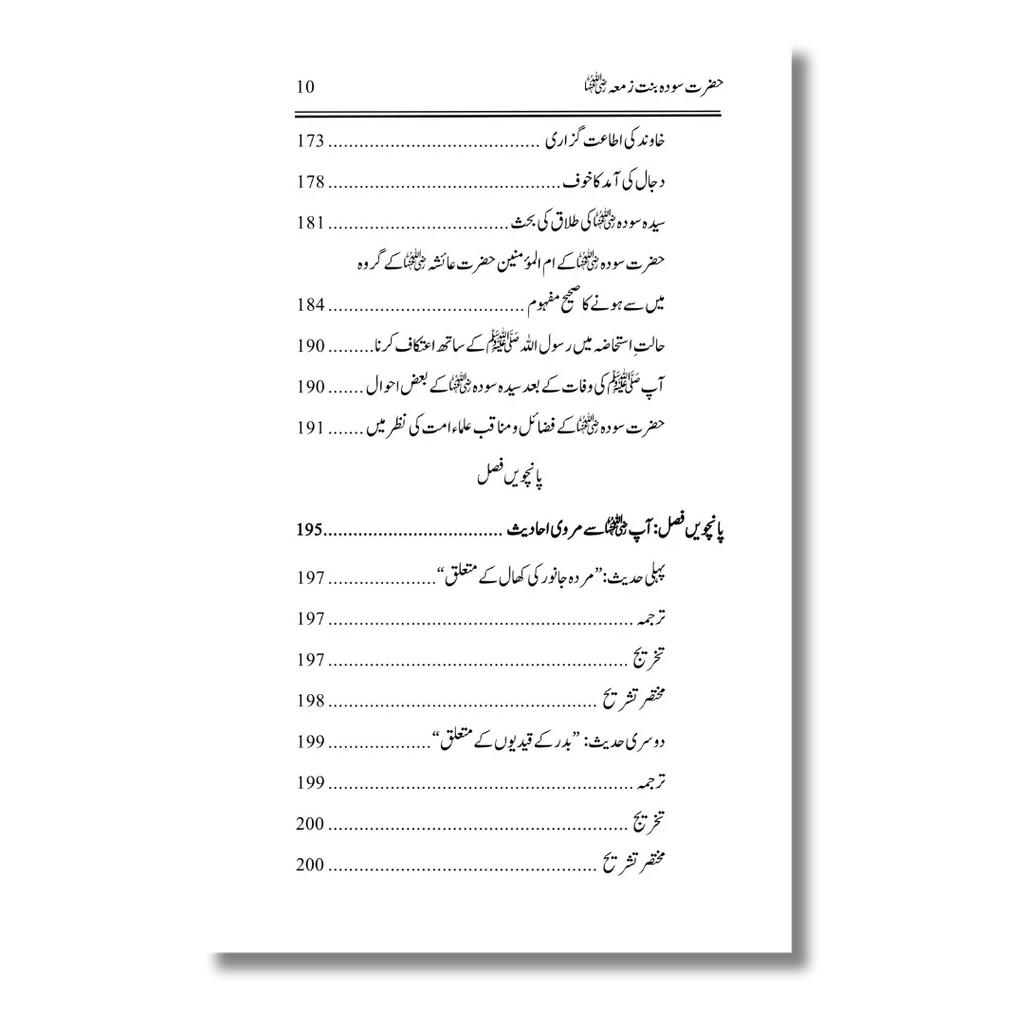 حضرت سودہ بنت زمعہ رضی اللہ عنہا 10
خاوند کی اطاعت گزاری ........................................ 173
دجال کی آمد کا خوف ............................................ 178
سیدہ سودہ رضی اللہ عنہا کی طلاق کی بحث ................................... 181
حضرت سودہ رضی اللہ عنہا کے ام المؤمنین حضرت عائشہ رضی اللہ عنہا کے گروہ
میں سے ہونے کا صحیح مفہوم ...................................... 184
حالتِ استحاضہ میں رسول اللہ ﷺ کے ساتھ اعتکاف کرنا ......... 190
آپ ﷺ کی وفات کے بعد سیدہ سودہ رضی اللہ عنہا کے بعض احوال ....... 190
حضرت سودہ رضی اللہ عنہا کے فضائل و مناقب علماء امت کی نظر میں ....... 191
پانچویں فصل
پانچویں فصل: آپ رضی اللہ عنہا سے مروی احادیث .................................... 195
پہلی حدیث: ”مردہ جانور کی کھال کے متعلق“ ..................... 197
ترجمہ ........................................................... 197
تخریج .......................................................... 197
مختصر تشریح .................................................... 198
دوسری حدیث: ”بدر کے قیدیوں کے متعلق“ .................... 199
ترجمہ ........................................................... 199
تخریج .......................................................... 200
مختصر تشریح .................................................... 200